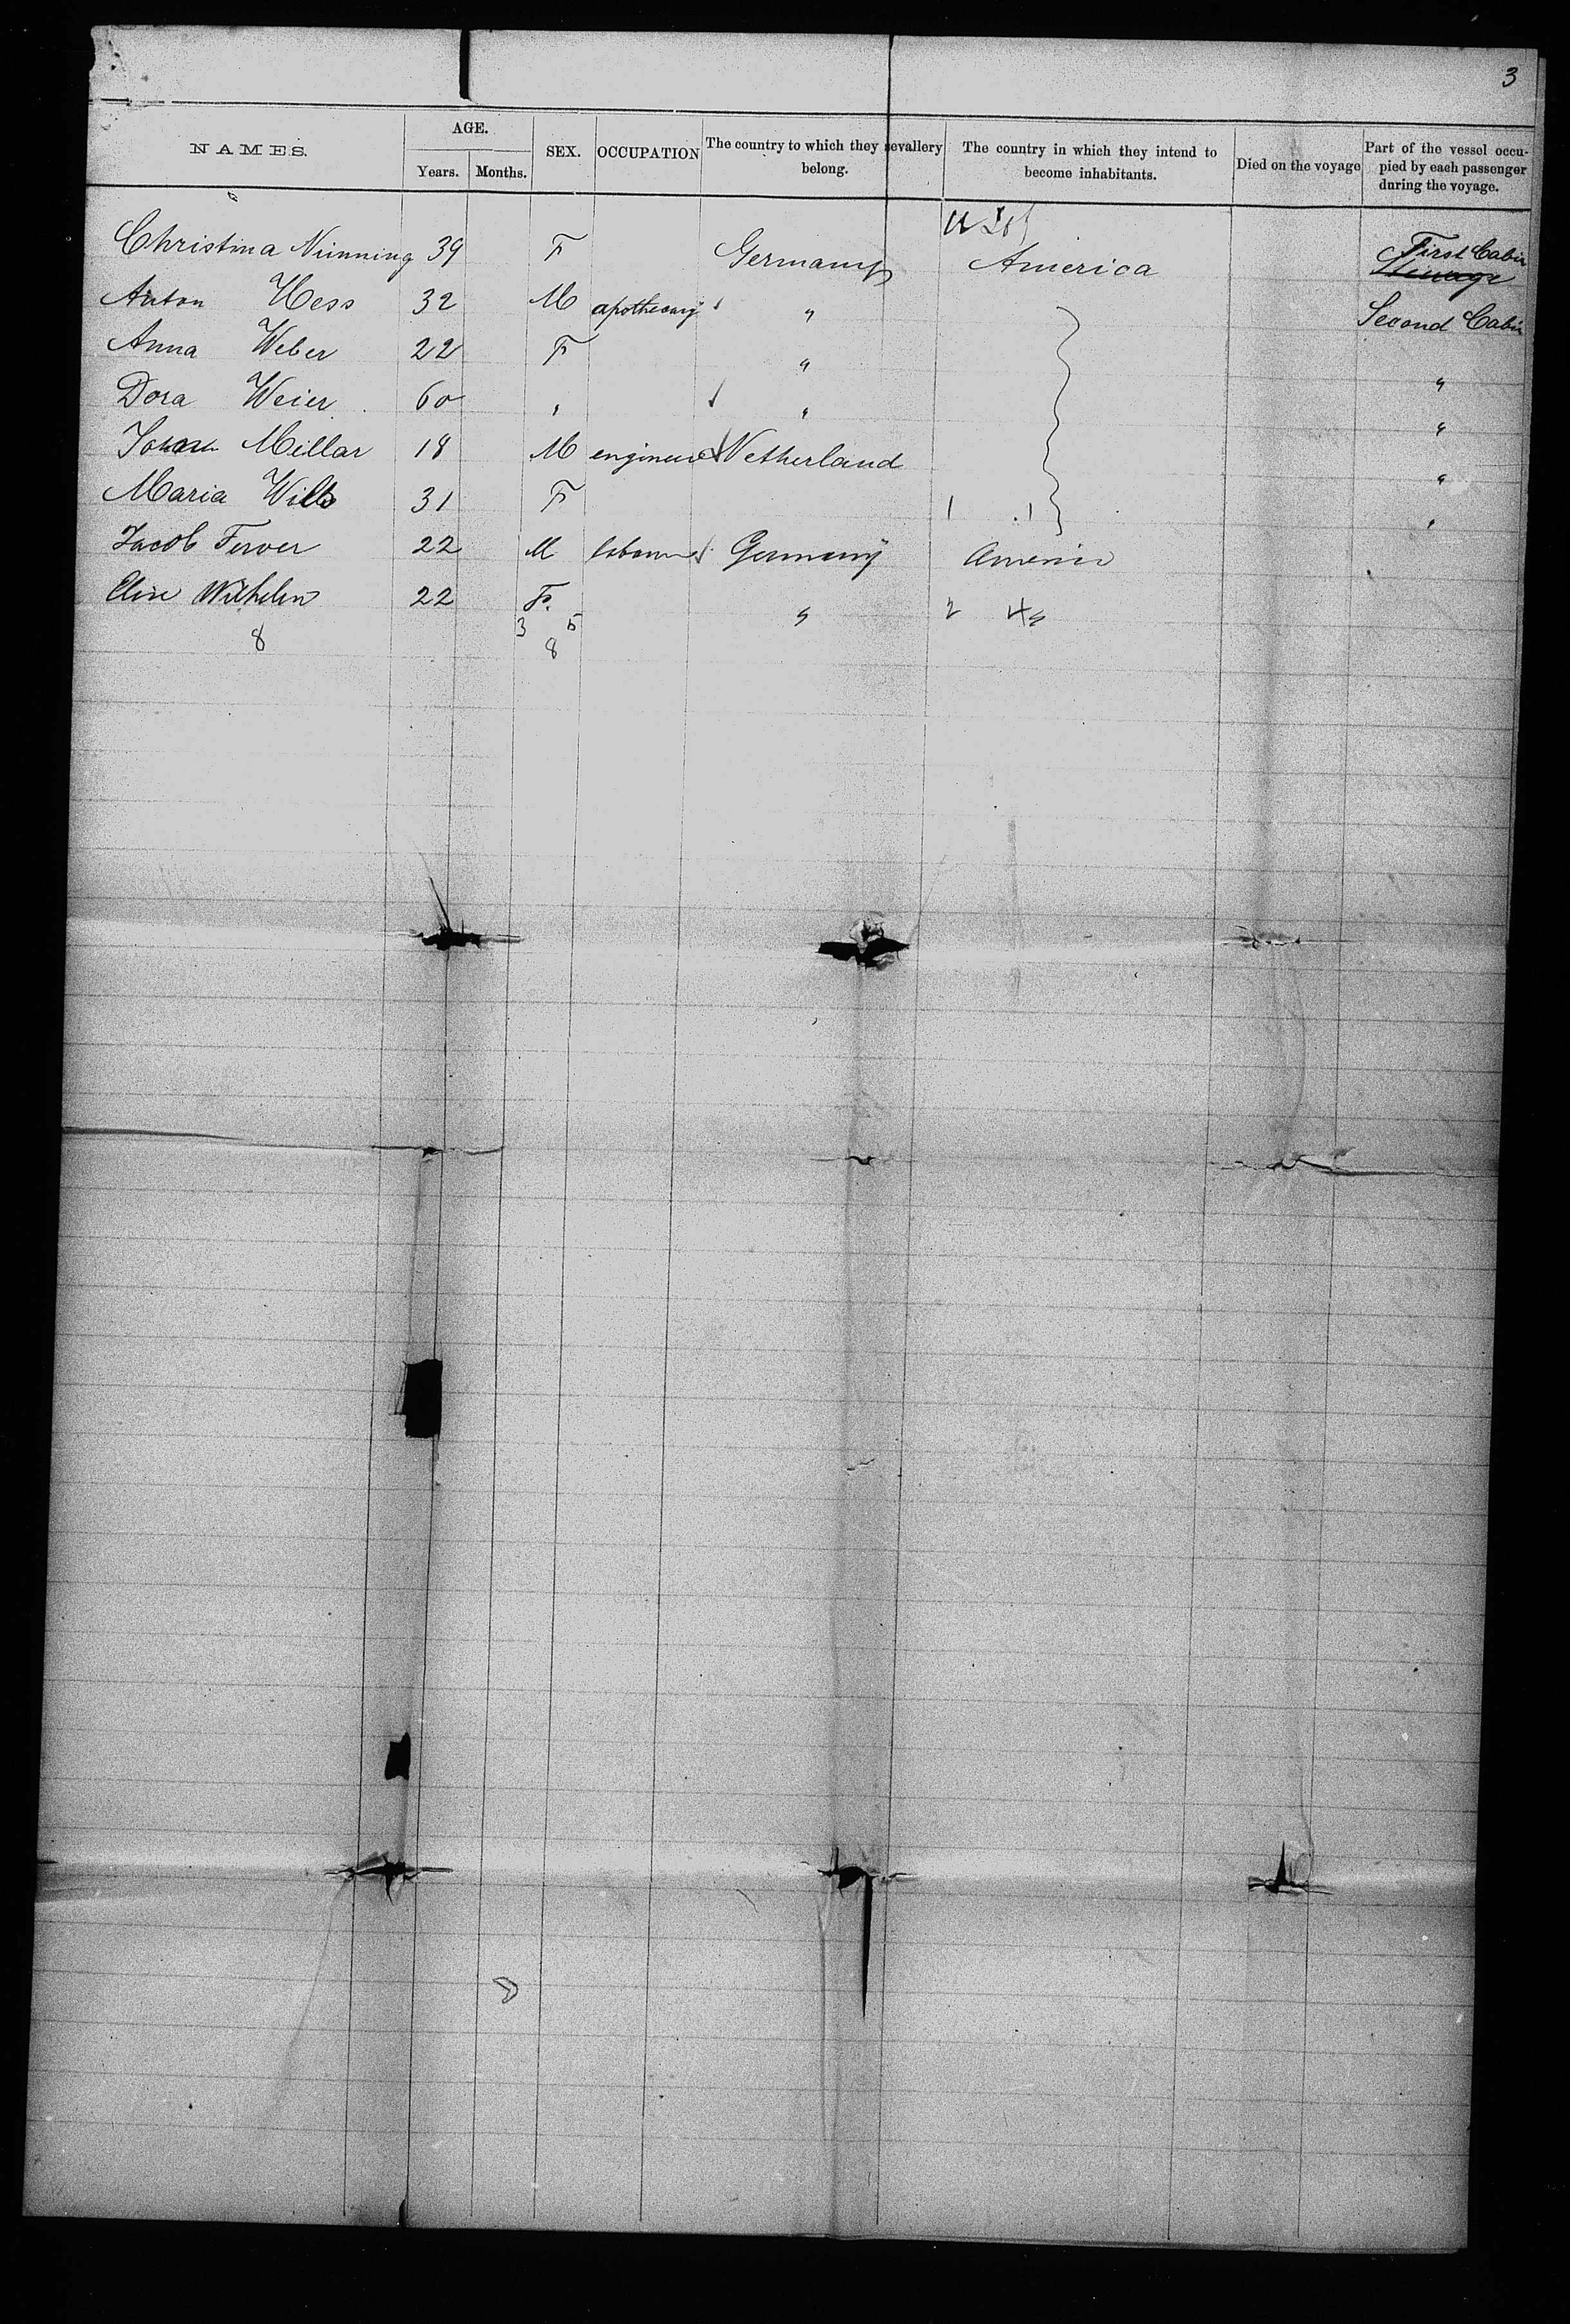 3
NAMES. AGE. Years. Months. SEX. OCCUPATION The country to which they sevallery belong. The country in which they intend to become inhabitants. Died on the voyage Part of the vessel occupied by each passenger during the voyage.
Christina Nünning 39 F Germany America First Cabin
Anton Hess 32 M apothecary " Second Cabin
Anna Weber 22 F " "
Dora Weier 60 " " "
Millar 18 M engineer Netherland "
Maria Wills 31 F 1 1 "
Jacob Ferver 22 M labourer Germany America
Elise Wilhelm 22 F. " 2 "
3 5
8 8